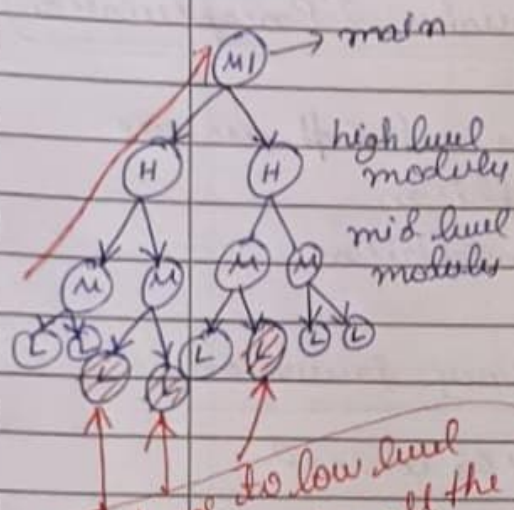 M1 → main
H H
high level
modules
mid level
modules
M M M M
L L L L L L L L
to low level
of the